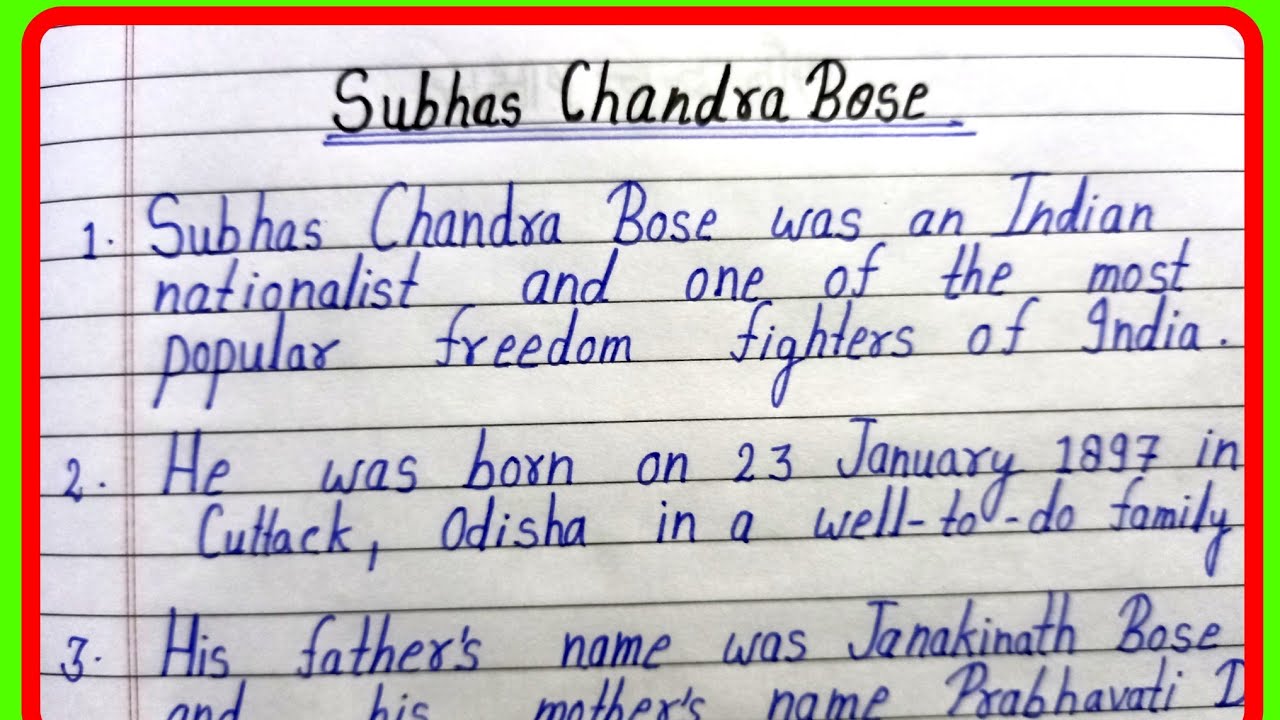 Subhas Chandra Bose
1. Subhas Chandra Bose was an Indian
nationalist and one of the most
popular freedom fighters of India.
2. He was born on 23 January 1897 in
Cuttack, Odisha in a well-to-do family
3. His father's name was Janakinath Bose
and his mother's name Prabhavati D